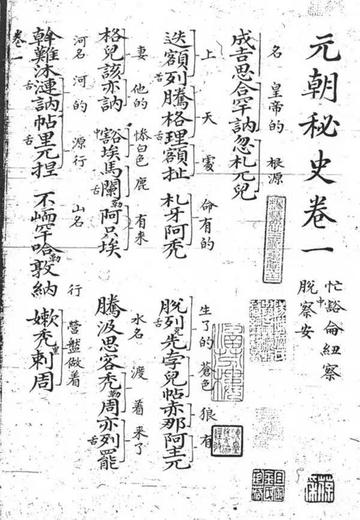 元朝秘史卷一
忙豁侖紐察
脫中察安
名 皇帝的 根源
成吉思合罕訥忽札兀兒
上 天 處 命有的 生了的 蒼色 狼 有
迭額舌列騰格舌理額扯 札牙阿禿 脫舌列先孛兒帖赤那阿主兀
妻 他的 慘白色 鹿 有来 水名 渡着来了
格兒該亦訥 中豁埃馬闌勒阿只埃 騰汲思客禿勒周亦舌列罷
河名 河的 源行 山名 行 營盤做着
斡難沐舌漣訥帖舌里兀捏 不峏罕哈勒敦納 嫩禿剌周
卷一